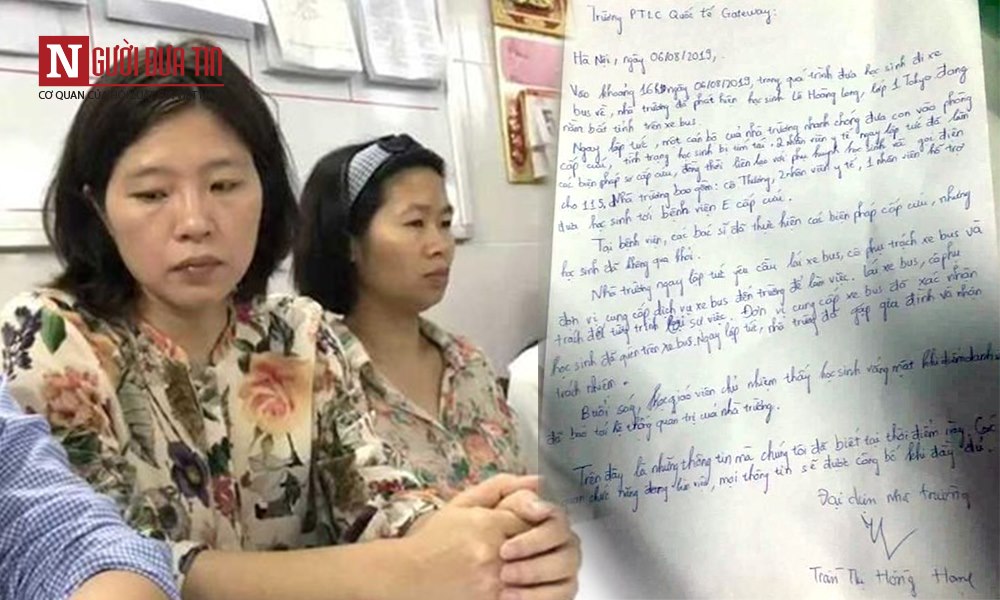 NGƯỜI ĐƯA TIN
CƠ QUAN CỦA
Trường PTLC Quốc tế Gateway:
Hà Nội, ngày 06/08/2019,
Vào khoảng 16h ngày 06/08/2019, trong quá trình đưa học sinh đi xe
bus về, nhà trường đã phát hiện học sinh Lê Hoàng Long, lớp 1 Tokyo đang
nằm bất tỉnh trên xe bus.
Ngay lập tức, một cán bộ của nhà trường nhanh chóng đưa con vào phòng
cấp cứu, tình trạng học sinh bị tím tái, 2 nhân viên y tế ngay lập tức đã làm
các biện pháp sơ cấp cứu, đồng thời liên lạc với phụ huynh học sinh và gọi điện
cho 115. Nhà trường bao gồm: cô Thương, 2 nhân viên y tế, 1 nhân viên hỗ trợ
đưa học sinh tới bệnh viện E cấp cứu.
Tại bệnh viện, các bác sĩ đã thực hiện các biện pháp cấp cứu, nhưng
học sinh đã không qua khỏi.
Nhà trường ngay lập tức yêu cầu lái xe bus, cô phụ trách xe bus và
đơn vị cung cấp dịch vụ xe bus đến trường để làm việc. Lái xe bus, cô phụ
trách để tường trình lại sự việc. Đơn vị cung cấp xe bus đã xác nhận
học sinh đã quên trên xe bus. Ngay lập tức, nhà trường đã gặp gia đình và nhận
trách nhiệm.
Buổi sáng, giáo viên chủ nhiệm thấy học sinh vắng mặt khi điểm danh và
đã báo tới hệ thống quản trị của nhà trường.
Trên đây là những thông tin mà chúng tôi đã biết tại thời điểm này. Các
chức năng đang làm việc, mọi thông tin sẽ được công bố khi đầy đủ.
Đại diện nhà trường
Trần Thị Hồng Hạnh